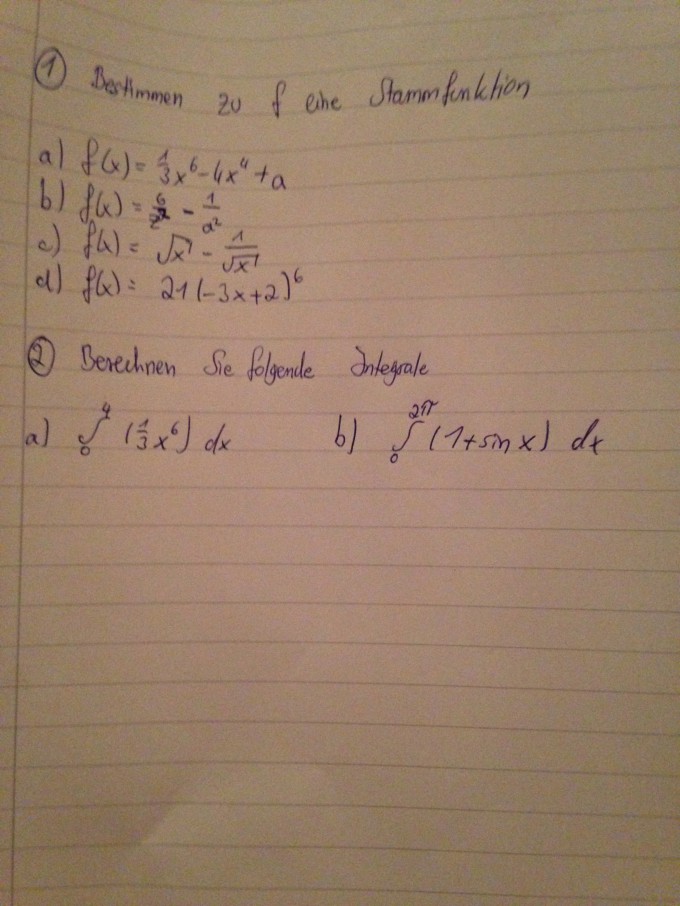 ① Bestimmen zu f eine Stammfunktion
a) f(x) = 1/3 x⁶ - 4x⁴ + a
b) f(x) = - 1/a²
c) f(x) = √x - 1/√x
d) f(x) = 21(-3x+2)⁶
② Berechnen Sie folgende Integrale
a) ∫₀⁴ (1/3 x⁶) dx b) ∫₀^2π (1+sin x) dx